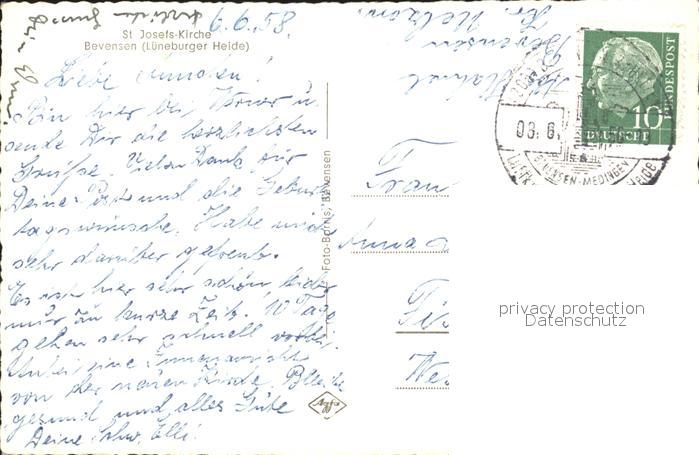 6.6.58.
St Josefs-Kirche
Bevensen (Lüneburger Heide)
Liebe Ännchen!
Bin hier bei Werner u.
sende Dir die herzlichsten
Grüsse. Vielen Dank für
Deine Post und die Geburts
tagswünsche. Habe mich
sehr darüber gefreut.
Es ist hier sehr schön, leider
nur zu kurze Zeit. 10 Tage
gehen sehr schnell vorbei.
Anbei eine Innenansicht
von der neuen Kirche. Bleibe
gesund und alles Gute
Deine Schw. Elli.
Foto-Borris, Bevensen
Agfa
Bevensen
Kr. Uelzen
DEUTSCHE BUNDESPOST
10
06.6.
BEVENSEN-MEDINGEN
HEIDE
Frau
Anna
We
privacy protection
Datenschutz